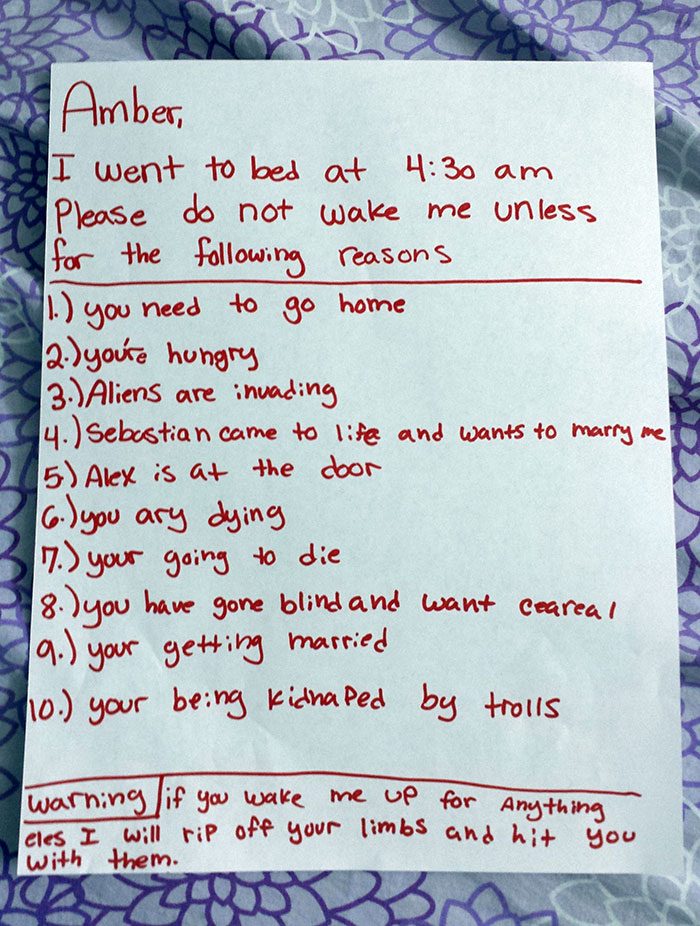 Amber,
I went to bed at 4:30 am
Please do not wake me unless
for the following reasons
1.) you need to go home
2.) you're hungry
3.) Aliens are invading
4.) Sebastian came to life and wants to marry me
5) Alex is at the door
6.) you ary dying
7.) your going to die
8.) you have gone blind and want ceareal
9.) your getting married
10.) your being kidnaped by trolls
warning if you wake me up for Anything
eles I will rip off your limbs and hit you
with them.